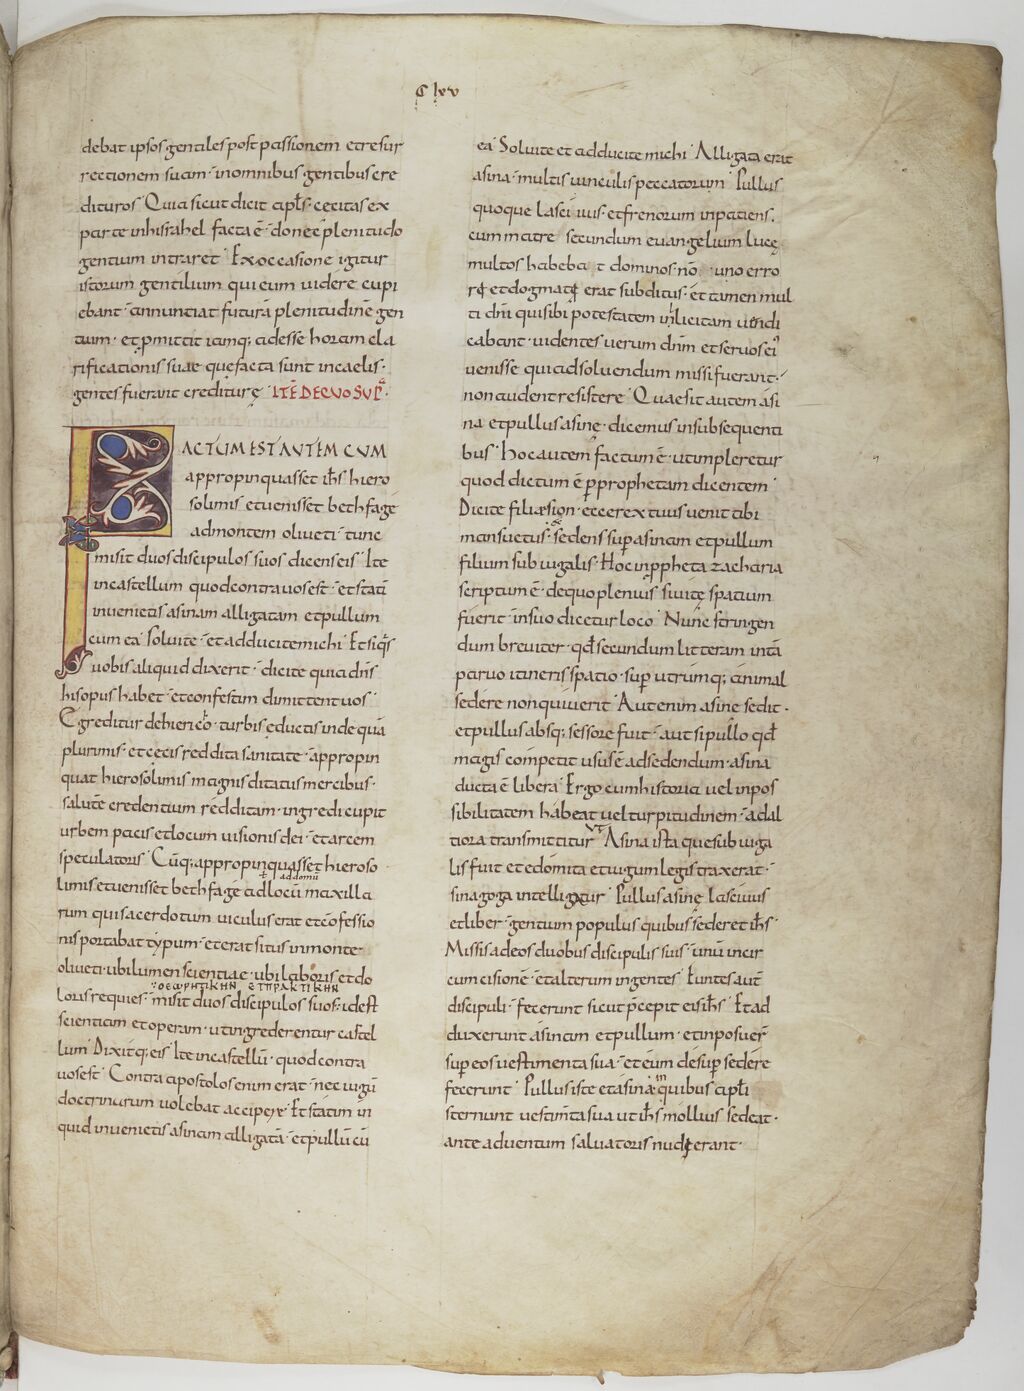 C lxv
debat ipsos gentiles post passionem et resur
rectionem suam · in omnibus gentibus cre
dituros · Quia sicut dicit apłs · cecitas ex
parte in hisrahel facta ē · donec plenitudo
gentium intraret · Ex occasione igitur
istorum gentilium qui eum uidere cupi
ebant · annunciat futurā plenitudinē gen
tium · et ꝓmittit iamq; adesse horam cla
rificationis suae · que facta sunt in caelis ·
gentes fuerant crediturę · ITĒ DE QVO SVP̄ ·
FACTUM EST AUTEM CUM
appropinquasset ih̅s hiero
solimis et uenisset bethfage
ad montem oliueti · tunc
misit duos discipulos suos dicens eis · Ite
in castellum quod contra uos est · et statī
inuenietis asinam alligatam et pullum
cum ea · Soluite · et adducite michi · Et siqs
uobis aliquid dixerit · dicite quia dn̅s
his opus habet · et confestim dimittent uos ·
Egreditur de hierico · turbis eductis inde quā
plurimis · et cecis reddita sanitate · appropin
quat hierosolimis magnis ditatus mercibus ·
salute credentium redditam · ingredi cupit
urbem pacis et locum uisionis dei · et arcem
speculatoris · Cūq; appropinquasset hieroso
limis et uenisset bethfage ad locū maxilla
ł ad domū
rum qui sacerdotum uiculus erat et cōfessio
nis portabat typum · et erat situs in monte
oliueti · ubi lumen scientiae · ubi laboris et do
loris requies · misit duos discipulos suos · id est
ΘΕΩΡΗΤΙΚΗΝ ΕΤ ΠΡΑΚΤΙΚΗΝ
scientiam et operam · ut ingrederentur castel
lum · Dixitq; eis · Ite in castellū · quod contra
uos est · Contra apostolos enim erat · nec iugū
doctrinarum uolebat accipere · Et statim in
quid inuenietis asinam alligatā · et pullū cū
ea · Soluite et adducite michi · Alligata erat
asina · multis uinculis peccatorum · Pullus
quoque lasciuus · et frenorum inpatiens ·
cum matre secundum euangelium lucę
multos habebat dominos · nō uno erro
rę et dogmatę erat subditus · et tamen mul
ti dn̅i qui sibi potestatem inlicitam uendi
cabant · uidentes uerum dn̅m et seruos ei'
uenisse qui ad soluendum missi fuerant ·
non audent resistere · Quae sit autem asi
na et pullus asinę · dicemus in subsequenti
bus · Hoc autem factum ē · ut impleretur
quod dictum ē ꝑ prophetam dicentem ·
Dicite filiæ sion · ecce rex tuus uenit tibi
mansuetus · & sedens suꝑ asinam et pullum
filium subiugalis · Hoc in ꝓpheta zacharia
scriptum ē · de quo plenius si uitę spatium
fuerit · in suo dicetur loco · Nunc stringen
dum breuiter · qđ secundum litteram in tā
paruo itineris spatio · suꝑ utrumq; animal
sedere non quiuerit · Aut enim asinę sedit ·
et pullus absq; sessore fuit · aut si pullo qđ
magis competit usus ē ad sedendum · asina
ducta ē libera · Ergo cum historia uel inpos
sibilitatem habeat uel turpitudinem · ad al
tiora transmittitur · Asina ista que subiuga
lis fuit et edomita et iugum legis traxerat ·
sinagoga intelligitur · Pullus asinę lasciuus
et liber · gentium populus quibus sederet ih̅s ·
Missis ad eos duobus discipulis suis · unū in cir
cumcisionē · et alterum in gentes · Euntes autē
discipuli · fecerunt sicut p̄cepit eis ih̅s · Et ad
duxerunt asinam et pullum · et inposuer̄
suꝑ eos uestimenta sua · et eum desuꝑ sedere
fecerunt · Pullus iste et asina quibus apłi
sternunt uestim̄ta sua ut ih̅s mollius sedeat ·
ante aduentum saluatoris nudi erant ·